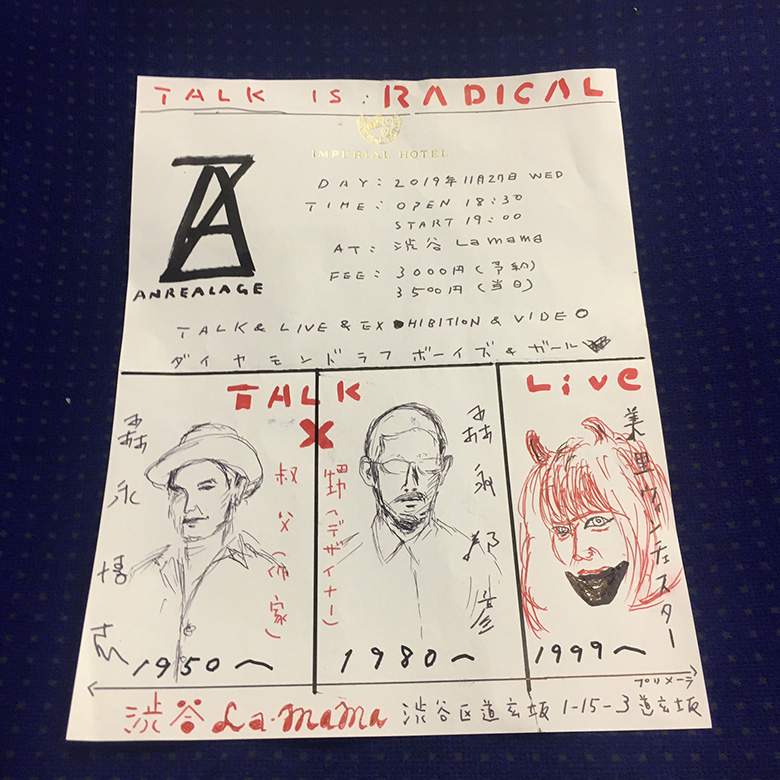 TALK IS RADICAL
IMPERIAL HOTEL
DAY: 2019年11月27日 WED
TIME: OPEN 18:30
START 19:00
AT: 渋谷 La mama
FEE: 3000円(予約)
3500円(当日)
ANREALAGE
TALK & LIVE & EXHIBITION & VIDEO
ダイヤモンドラフボーイズ&ガール
TALK
X
Live
森永博志
叔父(作家)
甥(デザイナー)
森永邦彦
美里ウィンチェスター
1950〜
1980〜
1999〜
渋谷 La.mama 渋谷区道玄坂 1-15-3 プリメーラ道玄坂